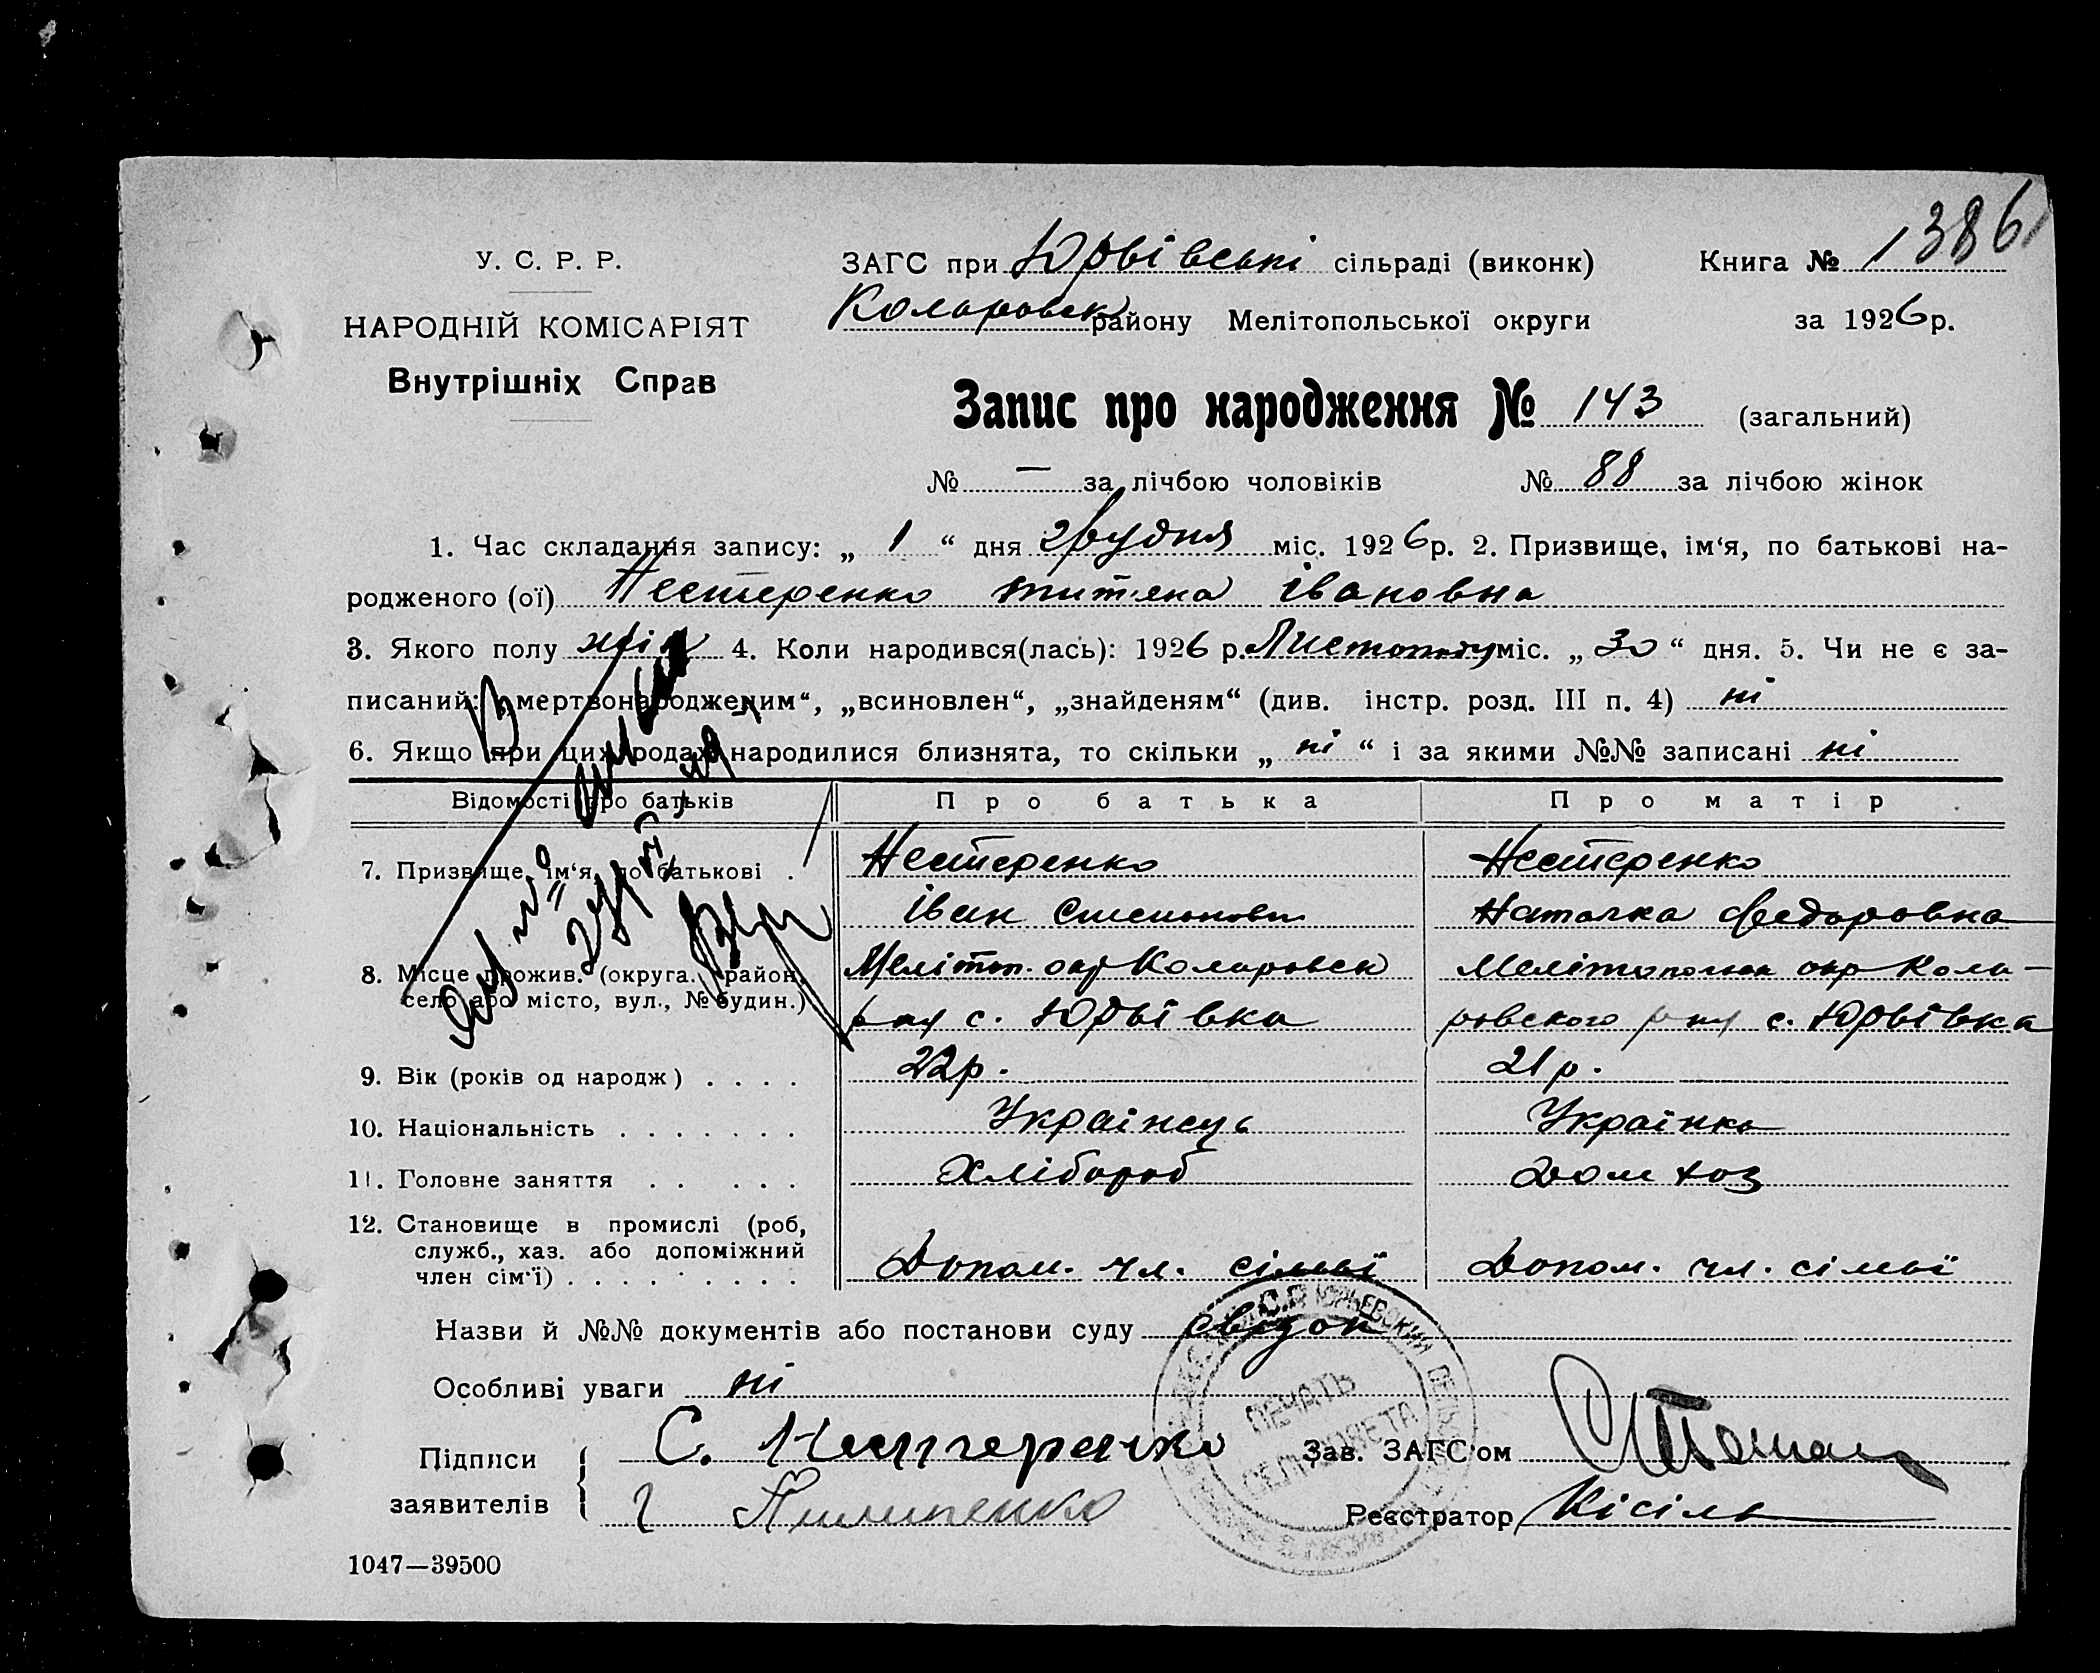 1386
У. С. Р. Р.
НАРОДНІЙ КОМІСАРІЯТ
Внутрішніх Справ
ЗАГС при Юрьівські сільраді (виконк) Книга №
Коларовск району Мелітопольської округи за 1926 р.
Запис про народження № 143 (загальний)
№ — за лічбою чоловіків № 88 за лічбою жінок
1. Час складання запису: „ 1 “ дня грудня міс. 1926 р. 2. Призвище, ім‘я, по батькові на-
родженого (ої) Нестеренко титяна івановна
3. Якого полу жін 4. Коли народився(лась): 1926 р. Листопаду міс. „ 30 “ дня. 5. Чи не є за-
писаний: „мертвонародженим“, „всиновлен“, „знайденям“ (див. інстр. розд. III п. 4) ні
6. Якщо при цих родах народилися близнята, то скільки „ ні “ і за якими №№ записані ні
Відомості про батьків Про батька Про матір
7. Призвище, ім‘я, по батькові . Нестеренко Нестеренко
іван Степанович Наталка Федоровна
8. Місце прожив. (округа, район, Меліттоп. окр Коларовск Мелітополськ окр Кола-
село або місто, вул., № будин.) рну с. Юрьівка ровского рну с. Юрьівка
9. Вік (років од народж) . . . . 22р. 21р.
10. Національність . . . . . . . Українець Українка
11. Головне заняття . . . . . . Хлібороб Дом хоз
12. Становище в промислі (роб,
служб., хаз. або допоміжний
член сім‘ї) . . . . . . . . . Допом. чл. сімьї Допом. чл. сімьї
Назви й №№ документів або постанови суду
Особливі уваги ні
Підписи
заявителів
С. Нестеренко
Г Пилипенко
Зав. ЗАГС‘ом
Реєстратор Кісіль
ПЕЧАТЬ
СЕЛЬСОВЕТА
1047—39500